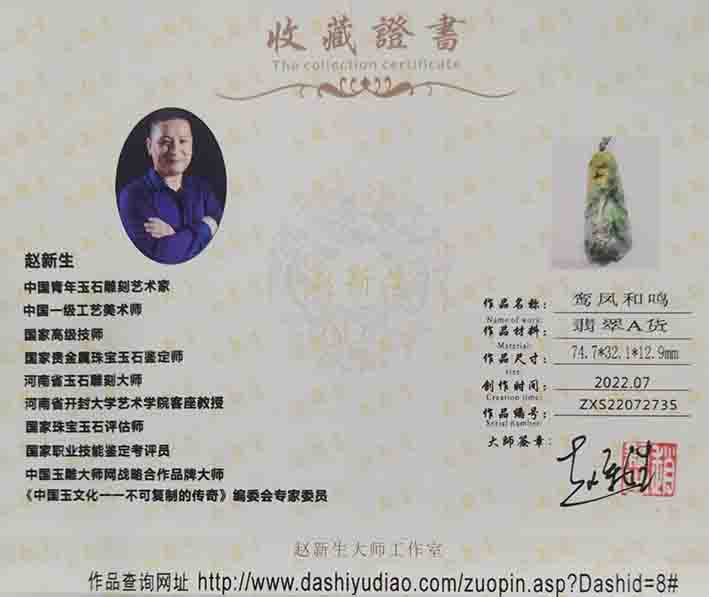 收藏證書
The collection certificate
赵新生
中国青年玉石雕刻艺术家
中国一级工艺美术师
国家高级技师
国家贵金属珠宝玉石鉴定师
河南省玉石雕刻大师
河南省开封大学艺术学院客座教授
国家珠宝玉石评估师
国家职业技能鉴定考评员
中国玉雕大师网战略合作品牌大师
《中国玉文化一一不可复制的传奇》编委会专家委员
赵新生
作品名称: 鸾凤和鸣
Name of work:
作品材料: 翡翠A货
Material:
作品尺寸: 74.7*32.1*12.9mm
size:
创作时间: 2022.07
Creation time:
作品编号: ZXS22072735
Serial number:
大师签章:
赵新生大师工作室
作品查询网址 http://www.dashiyudiao.com/zuopin.asp?Dashid=8#